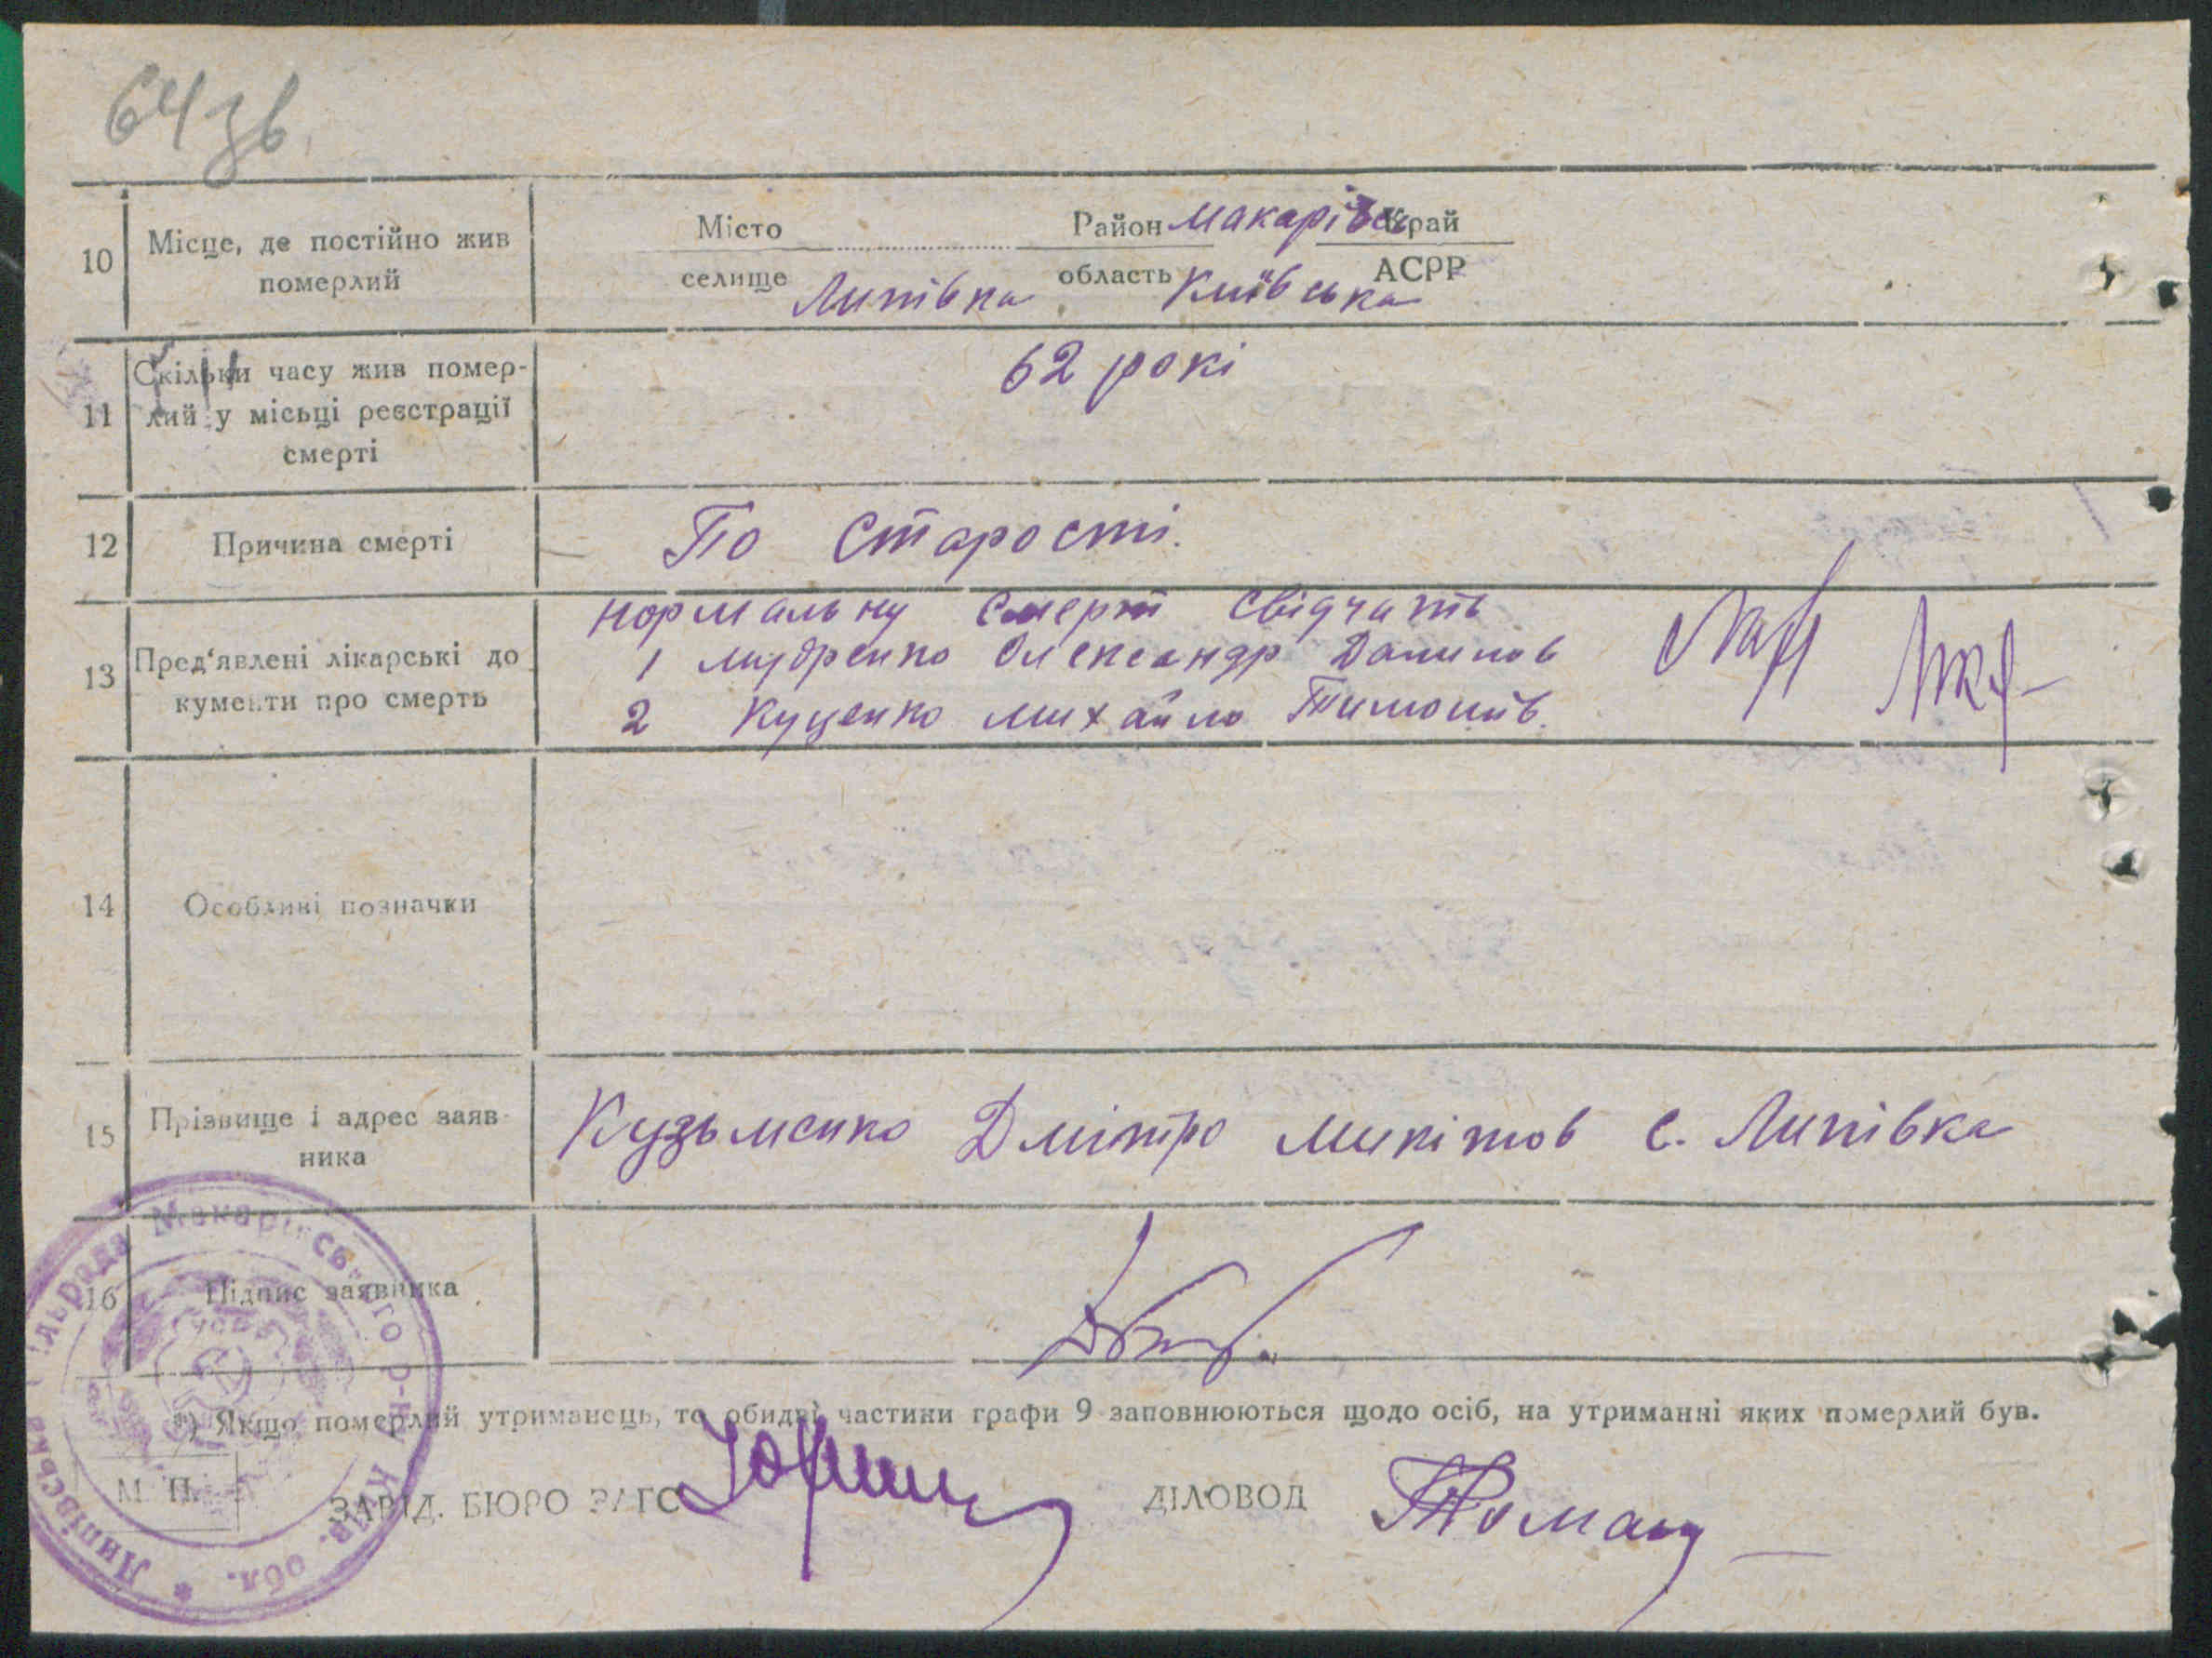 64зв.
10 Місце, де постійно жив померлий
Місто Район Макарівськ Край
селище Липівка область Київська АСРР
11 Скільки часу жив помер-
лий у місьці реєстрації
смерті
62 рокі
12 Причина смерті По Старості.
13 Пред'явлені лікарські до
кументи про смерть
нормальну смерть свідчать
1 Мудренко Олександр Данилов
2 Куценко Михайло Тимошів.
14 Особливі позначки
15 Прізвище і адрес заяв-
ника
Кузьменко Дмітро Микітов с. Липівка
16 Підпис заявника
*) Якщо померлий утриманець, то обидві частини графи 9 заповнюються щодо осіб, на утриманні яких померлий був.
М. П.
ЗАВІД. БЮРО ЗАГС ДІЛОВОД
Липівська сільрада Макарівського р-ну Київ. обл.
УСРР